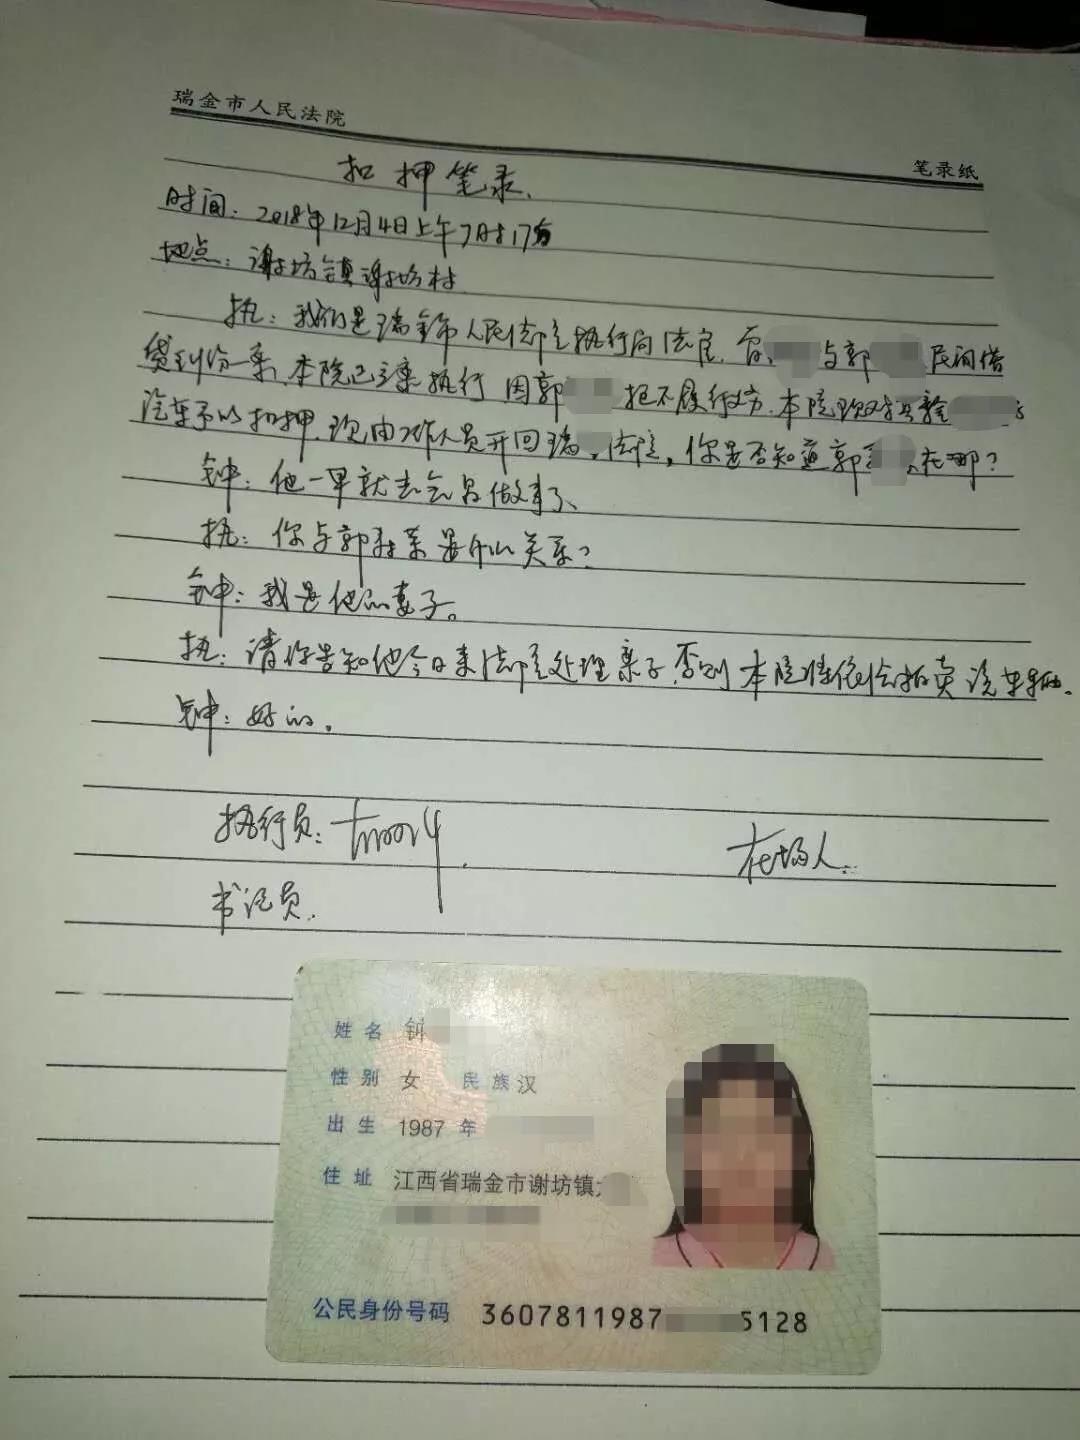 瑞金市人民法院
笔录纸
扣押笔录.
时间：2018年12月4日上午7时17分
地点：谢坊镇谢坊村
执：我们是瑞金市人民法院执行局法官. 与郭 民间借
贷纠纷一案、本院已立案执行 因郭 拒不履行义务. 本院现对
汽车予以扣押、现由工作人员开回瑞 法院，你是否知道郭 在哪？
钟：他一早就去会昌做事了、
执：你与郭 是什么关系？
钟：我是他的妻子。
执：请你告知他今日来法院处理案子，否则本院将依法拍卖该车辆.
钟：好的.
执行员：
在场人：
书记员.
姓名 钟
性别 女 民族 汉
出生 1987 年
住址 江西省瑞金市谢坊镇
公民身份号码 3607811987 5128